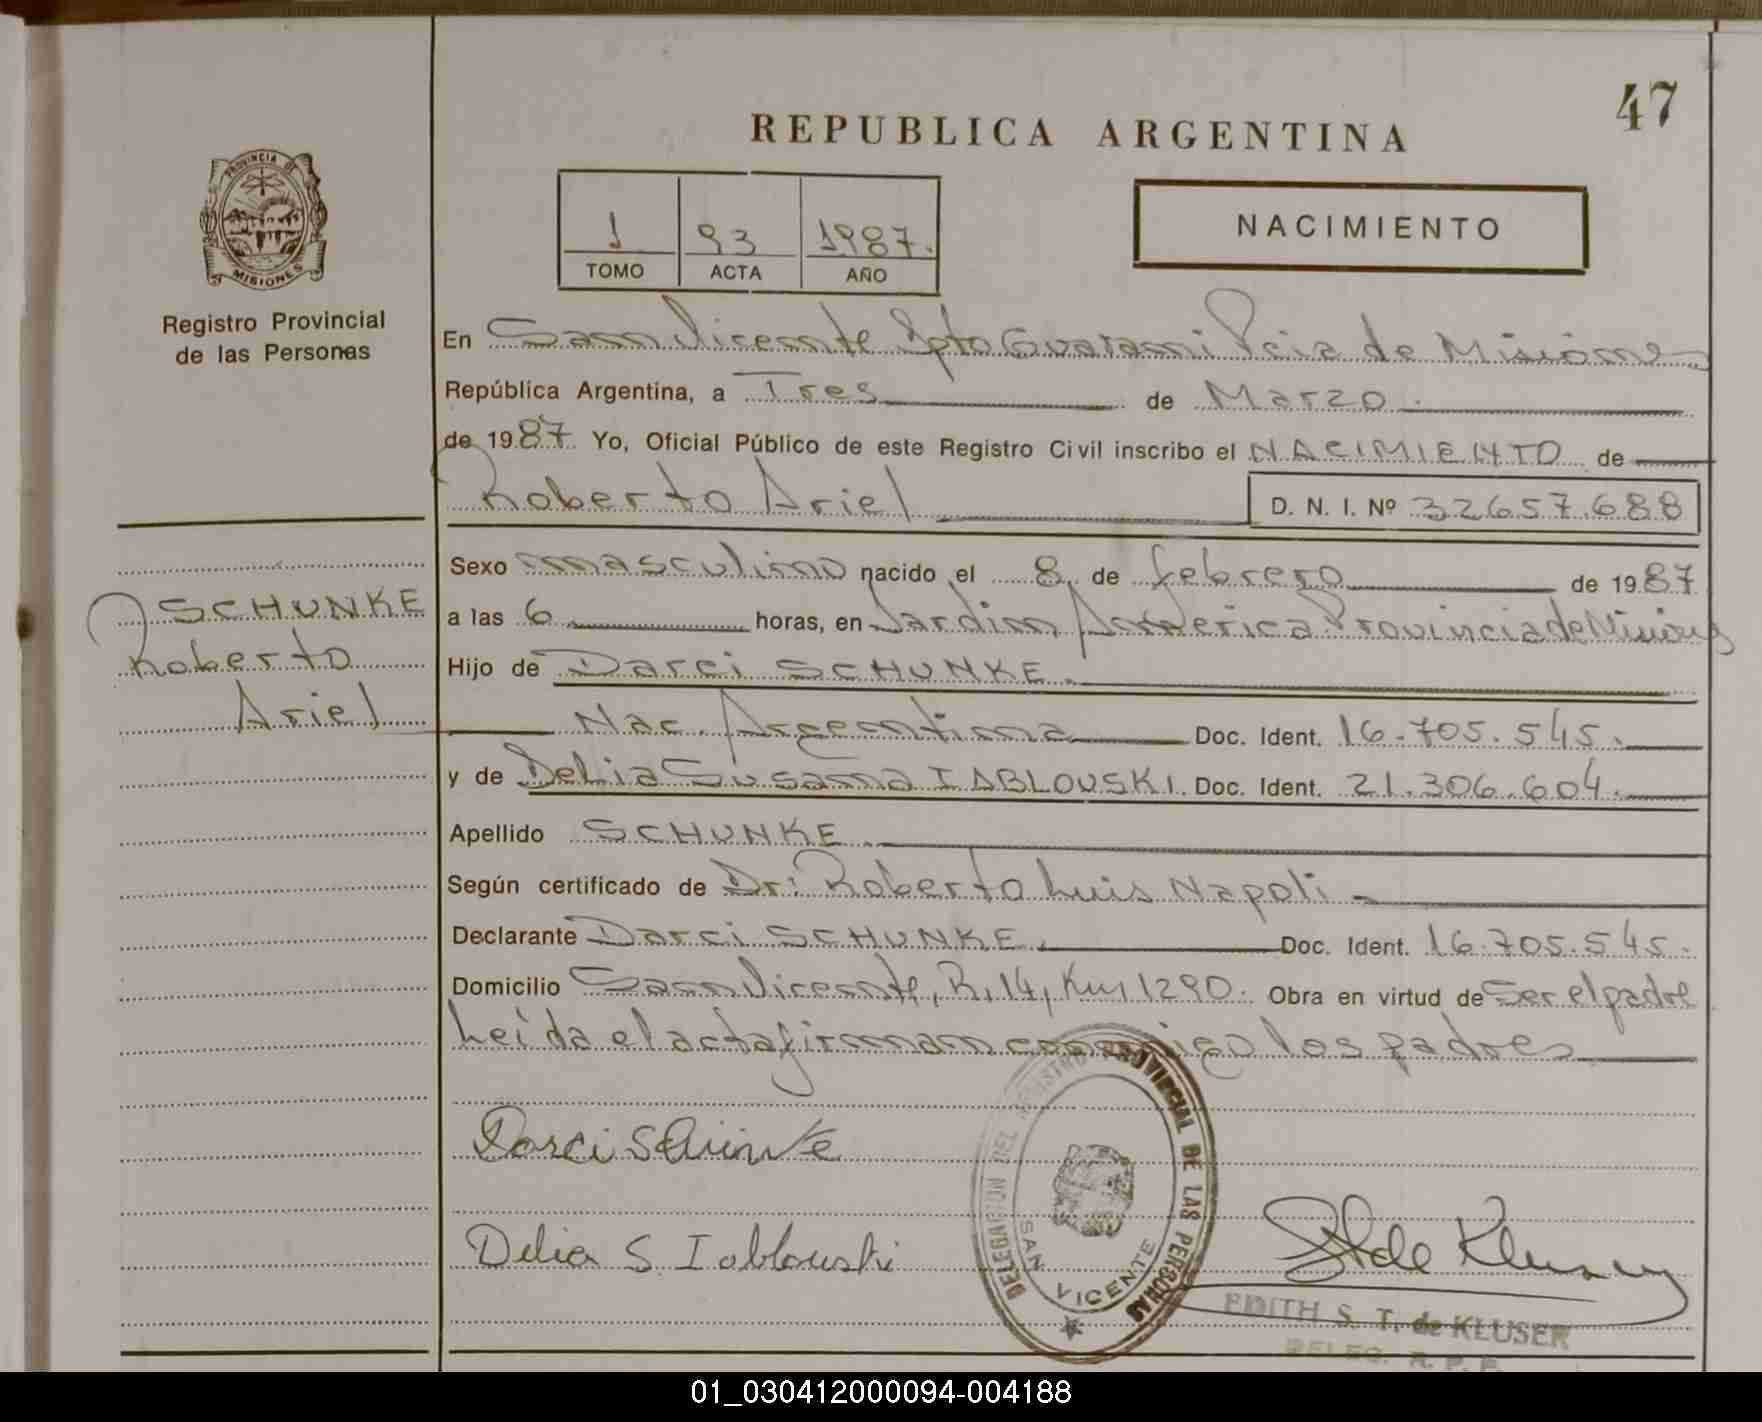 47
REPUBLICA ARGENTINA
PROVINCIA DE
MISIONES
Registro Provincial
de las Personas
1 93 1987.
TOMO ACTA AÑO
NACIMIENTO
En San Vicente Dpto Guarani Pcia de Misiones
República Argentina, a Tres de Marzo.
de 1987. Yo, Oficial Público de este Registro Civil inscribo el NACIMIENTO de
Roberto Ariel D. N. I. Nº 32657.688
SCHUNKE
Roberto
Ariel
Sexo masculino nacido el 8 de febrero de 1987
a las 6 horas, en Jardin America Provincia de Misiones
Hijo de Darci SCHUNKE.
Nac. Argentina Doc. Ident. 16.705.545.
y de Delia Susana IABLOUSKI. Doc. Ident. 21.306.604.
Apellido SCHUNKE.
Según certificado de Dr: Roberto Luis Napoli
Declarante Darci SCHUNKE. Doc. Ident. 16.705.545.
Domicilio San Vicente, R. 14, Km 1290. Obra en virtud de Ser el padre
Leída el acta firman conmigo los padres
Darci Schunke
Delia S. Iablouski
DELEGACION DEL REGISTRO PROVINCIAL DE LAS PERSONAS
SAN VICENTE
S T de Kluser
EDITH S. T. de KLUSER
DELEG. R. P. P.
01_030412000094-004188